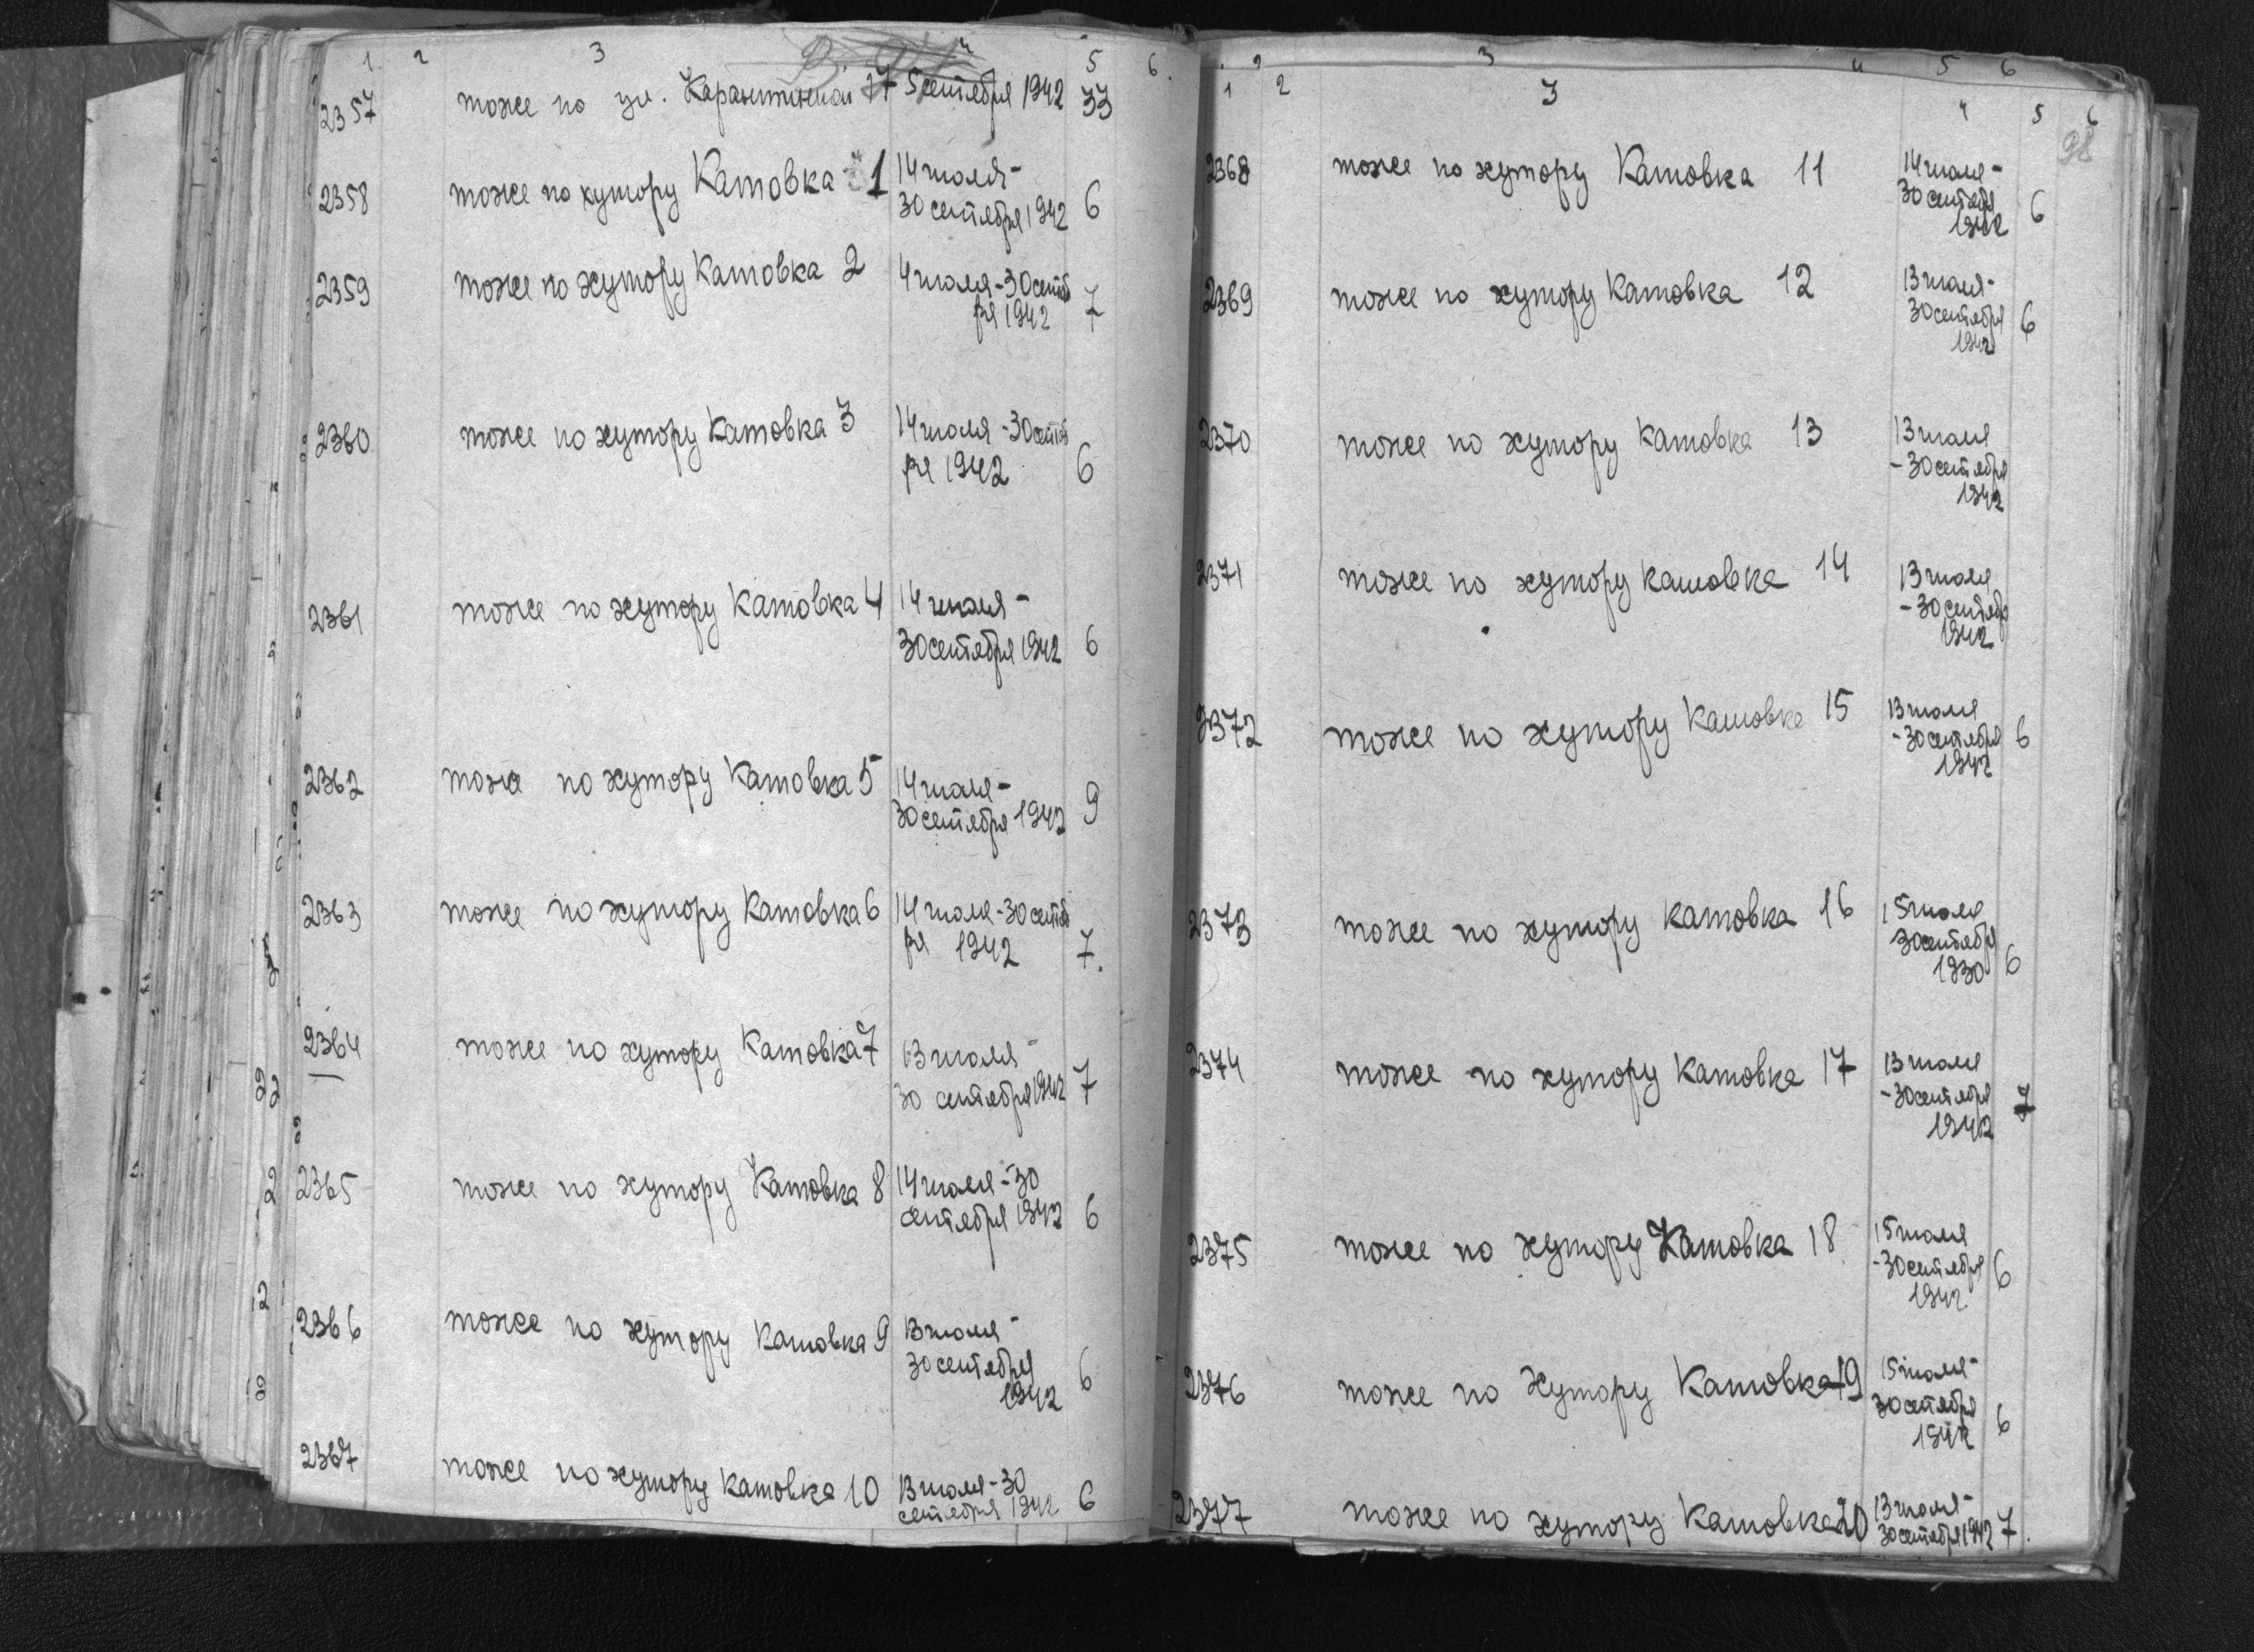 1 2 3 4 5 6
2357 тоже по ул. Карантинной 17 5 сентября 1942 33
2358 тоже по хутору Катовка 1 14 июля -
30 сентября 1942 6
2359 тоже по хутору Катовка 2 4 июля - 30 сентяб
ря 1942 7
2360 тоже по хутору Катовка 3 14 июля - 30 сентяб
ря 1942 6
2361 тоже по хутору Катовка 4 14 июля -
30 сентября 1942 6
2362 тоже по хутору Катовка 5 14 июля -
30 сентября 1942 9
2363 тоже по хутору Катовка 6 14 июля - 30 сентяб
ря 1942 7.
2364 тоже по хутору Катовка 7 13 июля -
30 сентября 1942 7
2365 тоже по хутору Катовка 8 14 июля - 30
сентября 1942 6
2366 тоже по хутору Катовка 9 13 июля -
30 сентября
1942 6
2367 тоже по хутору Катовка 10 13 июля - 30
сентября 1942 6
1 2 3 4 5 6
1 2 3 4 5 6
98
2368 тоже по хутору Катовка 11 14 июля -
30 сентября
1942 6
2369 тоже по хутору Катовка 12 13 июля -
30 сентября 6
1942
2370 тоже по хутору Катовка 13 13 июля
- 30 сентября
1942
2371 тоже по хутору Катовка 14 13 июля
- 30 сентябр
1942
2372 тоже по хутору Катовка 15 13 июля
- 30 сентября 6
1942
2373 тоже по хутору Катовка 16 15 июля
30 сентября
1930 6
2374 тоже по хутору Катовка 17 13 июля
- 30 сентября 7
1942
2375 тоже по хутору Катовка 18 15 июля
- 30 сентября 6
1942
2376 тоже по хутору Катовка 19 15 июля -
30 сентября 6
1942
2377 тоже по хутору Катовка 20 13 июля -
30 сентября 1942 7.